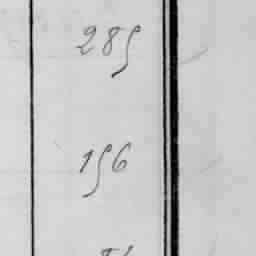 285
156